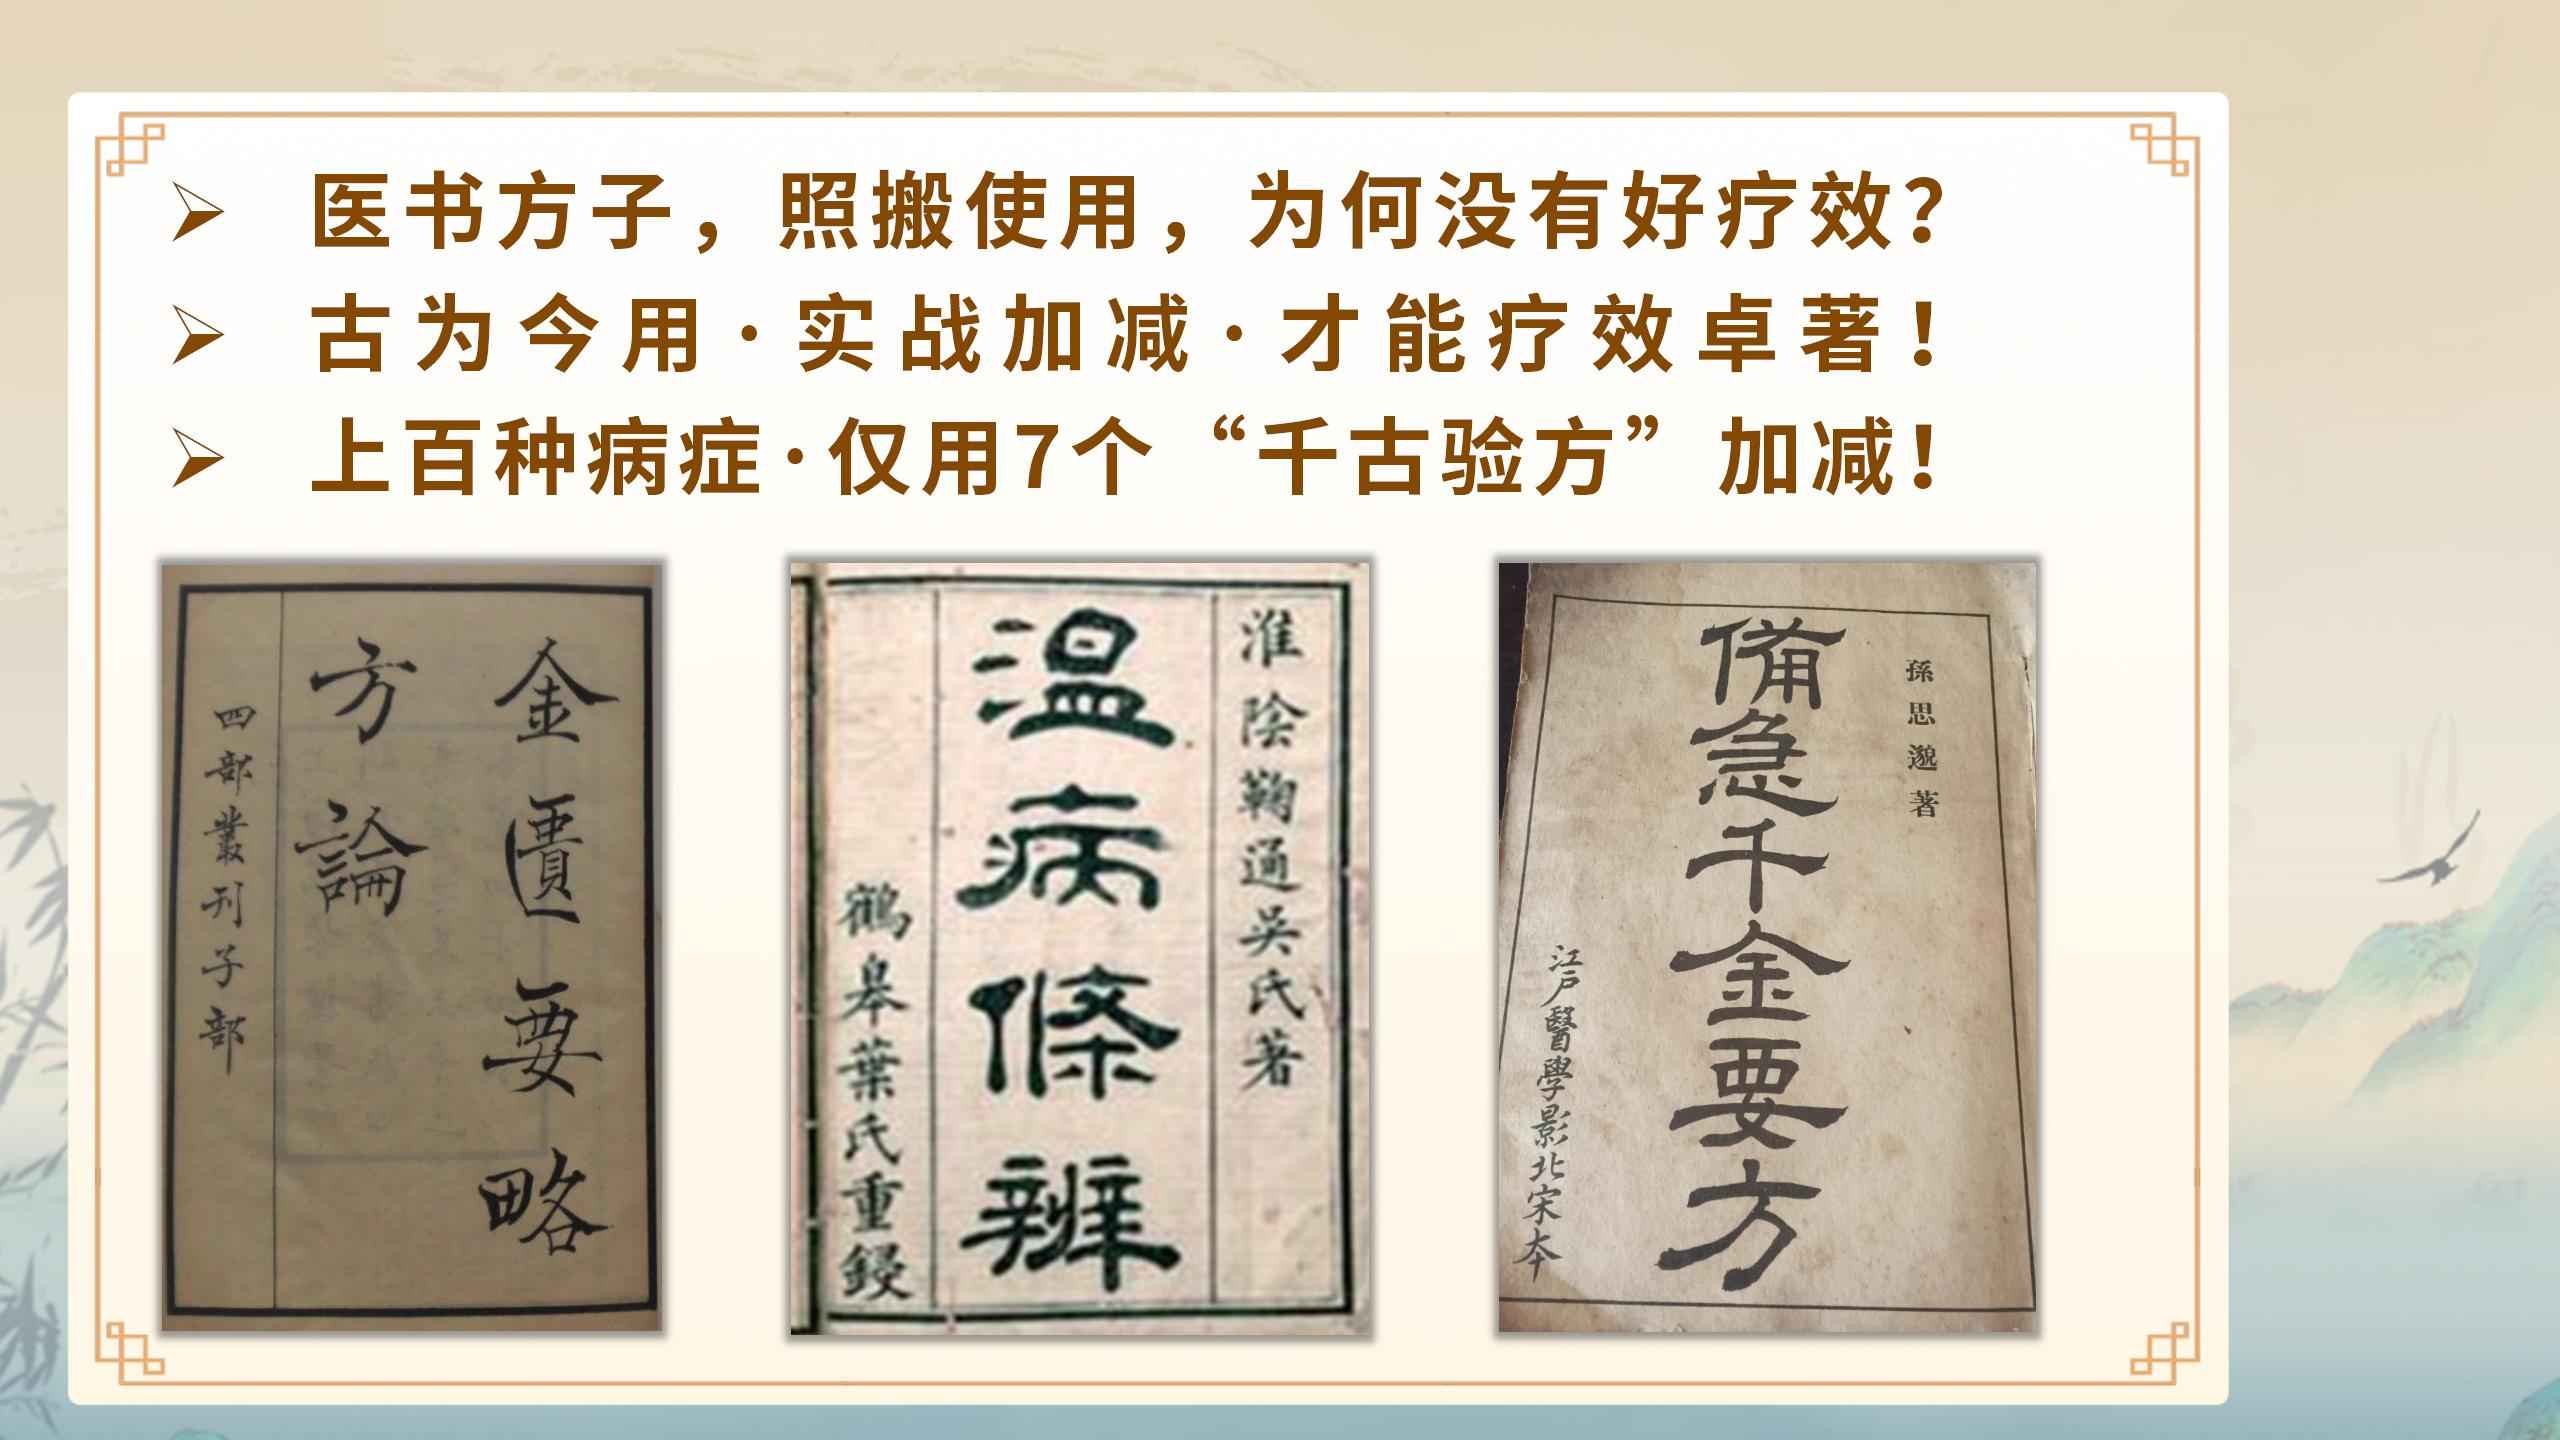 医书方子，照搬使用，为何没有好疗效？
古为今用·实战加减·才能疗效卓著！
上百种病症·仅用7个“千古验方”加减！
金匱要略
方論
四部叢刊子部
淮陰鞠通吳氏著
溫病條辨
鶴皋葉氏重鋟
孫思邈著
備急千金要方
江戶醫學影北宋本